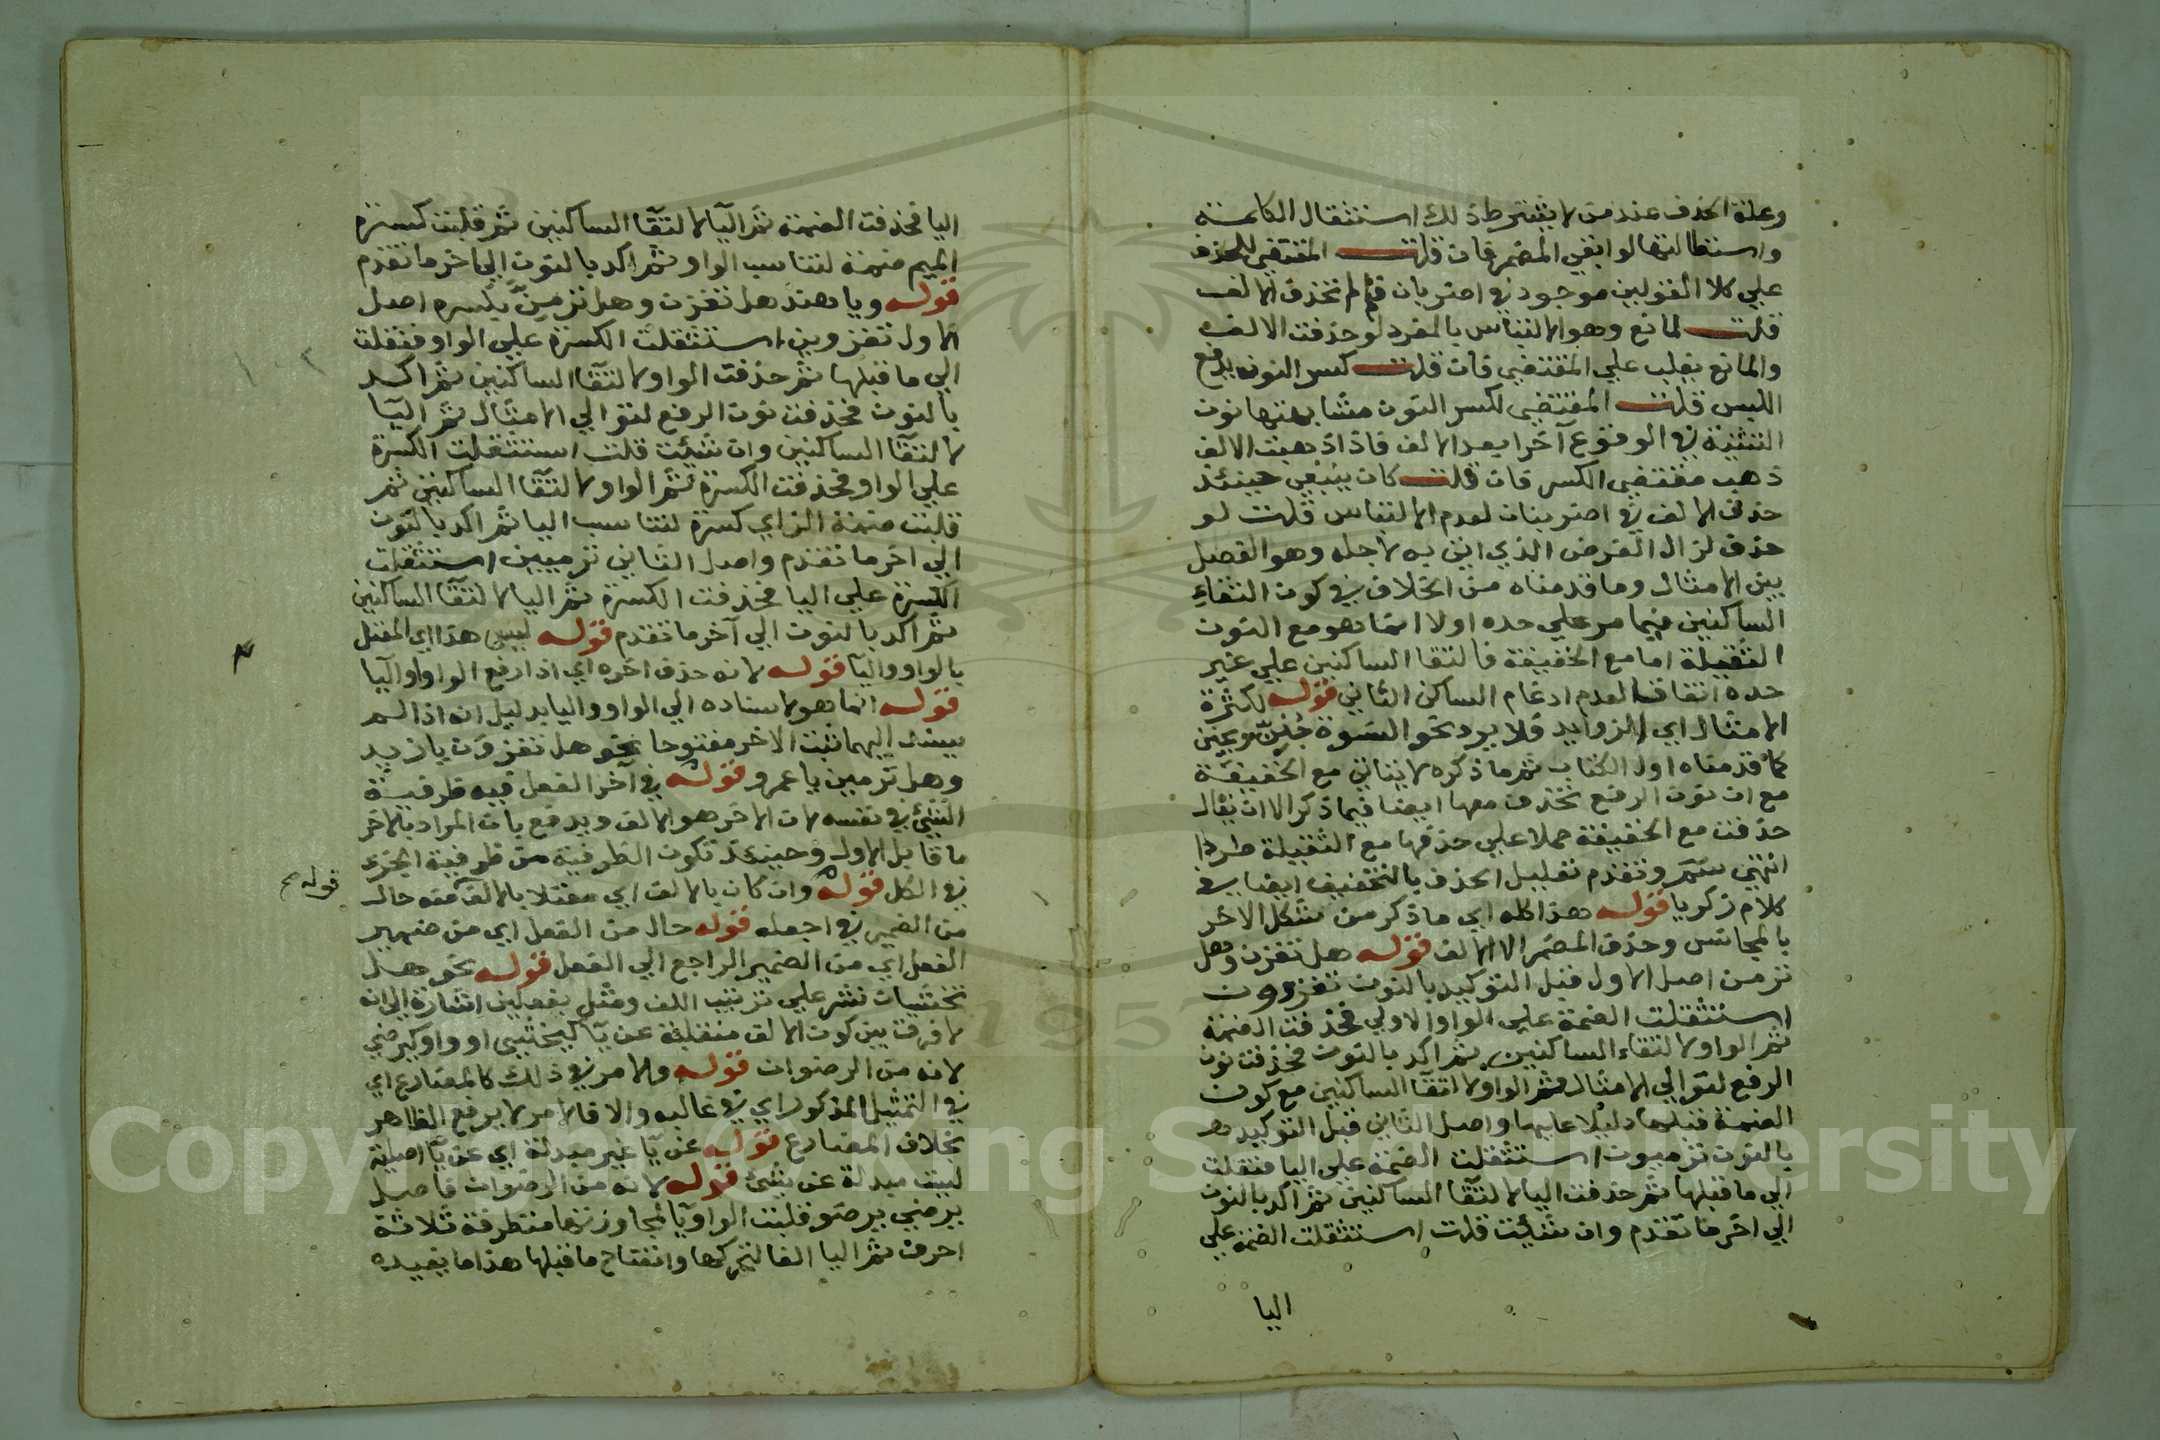 وعلة الحذف عند من لا يشترط ذلك استثقال الكلمة
واستطالتها لو ابقي المضمر فان قلت المقتضي للحذف
علي كلا القولين موجود في اضربان فلم لم تحذف الالف
قلت لمانع وهو الالتباس بالمفرد لو حذفت الالف
والمانع يغلب علي المقتضي فان قلت كسر النون يدفع
اللبس قلت المقتضي لكسر النون مشابهتها نون
التثنية في الوقوع آخرا بعد الالف فاذا ذهبت الالف
ذهب مقتضي الكسر فان قلت كان ينبغي حينئذ
حذف الالف في اضربنان لعدم الالتباس قلت لو
حذف لزال الغرض الذي اتي به لاجله وهو الفصل
بين الامثال وما قدمناه من الخلاف في كون التقاء
الساكنين فيما مر علي حده اولا انما هو مع النون
الثقيلة اما مع الخفيفة فالتقا الساكنين علي غير
حده اتفاقا لعدم ادغام الساكن الثاني قوله لكثرة
الامثال اي الزوايد فلا يرد نحو النسوة جنن ويجنن
كما قدمناه اول الكتاب ثم ما ذكره لا يتاتي مع الخفيفة
مع ان نون الرفع تحذف معها ايضا فيما ذكر الا ان يقال
حذفت مع الخفيفة حملا علي حذفها مع الثقيلة طردا
انتهي سم وتقدم تعليل الحذف بالتخفيف ايضا في
كلام زكريا قوله هذا كله اي ما ذكر من شكل الاخر
بالمجانس وحذف المضمر الا الالف قوله هل تغزن وهل
ترمن اصل الاول قبل التوكيد بالنون تغزوون
استثقلت الضمة علي الواو الاولي فحذفت الضمة
ثم الواو لالتقاء الساكنين ثم اكد بالنون فحذفت نون
الرفع لتوالي الامثال ثم الواو لالتقآ الساكنين مع كون
الضمة قبلها دليلا عليها واصل الثاني قبل التوكيد
بالنون ترميون استثقلت الضمة علي اليا فنقلت
الي ما قبلها ثم حذفت اليا لالتقآ الساكنين ثم اكد بالنون
الي اخر ما تقدم وان شئت قلت استثقلت الضمة علي
اليا
اليا فحذفت الضمة ثم اليآ لالتقآ الساكنين ثم قلبت كسرة
الميم ضمة لتناسب الواو ثم اكد بالنون الي اخر ما تقدم
قوله ويا هند هل تغزن وهل ترمن بكسره اصل
الاول تغزوين استثقلت الكسرة علي الواو فنقلت
الي ما قبلها ثم حذفت الواو لالتقآ الساكنين ثم اكد
بالنون فحذفت نون الرفع لتوالي الامثال ثم اليآ
لالتقآ الساكنين وان شئت قلت استثقلت الكسرة
علي الواو فحذفت الكسرة ثم الواو لالتقآ الساكنين ثم
قلبت ضمة الزاي كسرة لتناسب اليا ثم اكد بالنون
الي اخر ما تقدم واصل الثاني ترميين استثقلت
الكسرة علي اليا فحذفت الكسرة ثم اليا لالتقآ الساكنين
ثم اكد بالنون الي آخر ما تقدم قوله ليس هذا اي المعتل
بالواو واليآ قوله لانه حذف اخره اي اذا رفع الواو واليآ
قوله انما هو لاسناده الي الواو واليا بدليل انه اذا لم
يسند اليهما ثبت الاخر مفتوحا نحو هل تغزون يا زيد
وهل ترمين يا عمرو قوله في آخر الفعل فيه ظرفية
الشئ في نفسه لان الاخر هو الالف ويدفع بان المراد بالاخر
ما قابل الاول وحينئذ تكون الظرفية من ظرفية الجزء
في الكل قوله وان كان بالالف اي معتلا بالالف منه حال
قوله صح
من الضمير في اجعله قوله حال من الفعل اي من ضمير
الفعل اي من الضمير الراجع الي الفعل قوله نحو هل
تخشيان نشر علي ترتيب اللف ومثل بفعلين اشارة الي انه
لا فرق بين كون الالف منقلبة عن يآ كيخشي او واو كيرضي
لانه من الرضوان قوله والامر في ذلك كالمضارع اي
في التمثيل المذكور اي في غالبه والا فالامر لا يرفع الظاهر
بخلاف المضارع قوله عن يآ غير مبدلة اي عن يآ اصلية
ليست مبدلة عن شئ قوله لانه من الرضوان فاصل
يرضي يرضو قلبت الواو يآ لمجاوزتها متطرفة ثلاثة
احرف ثم اليا الفا لتحركها وانفتاح ما قبلها هذا ما يفيده
Copyright © King Saud University
1957